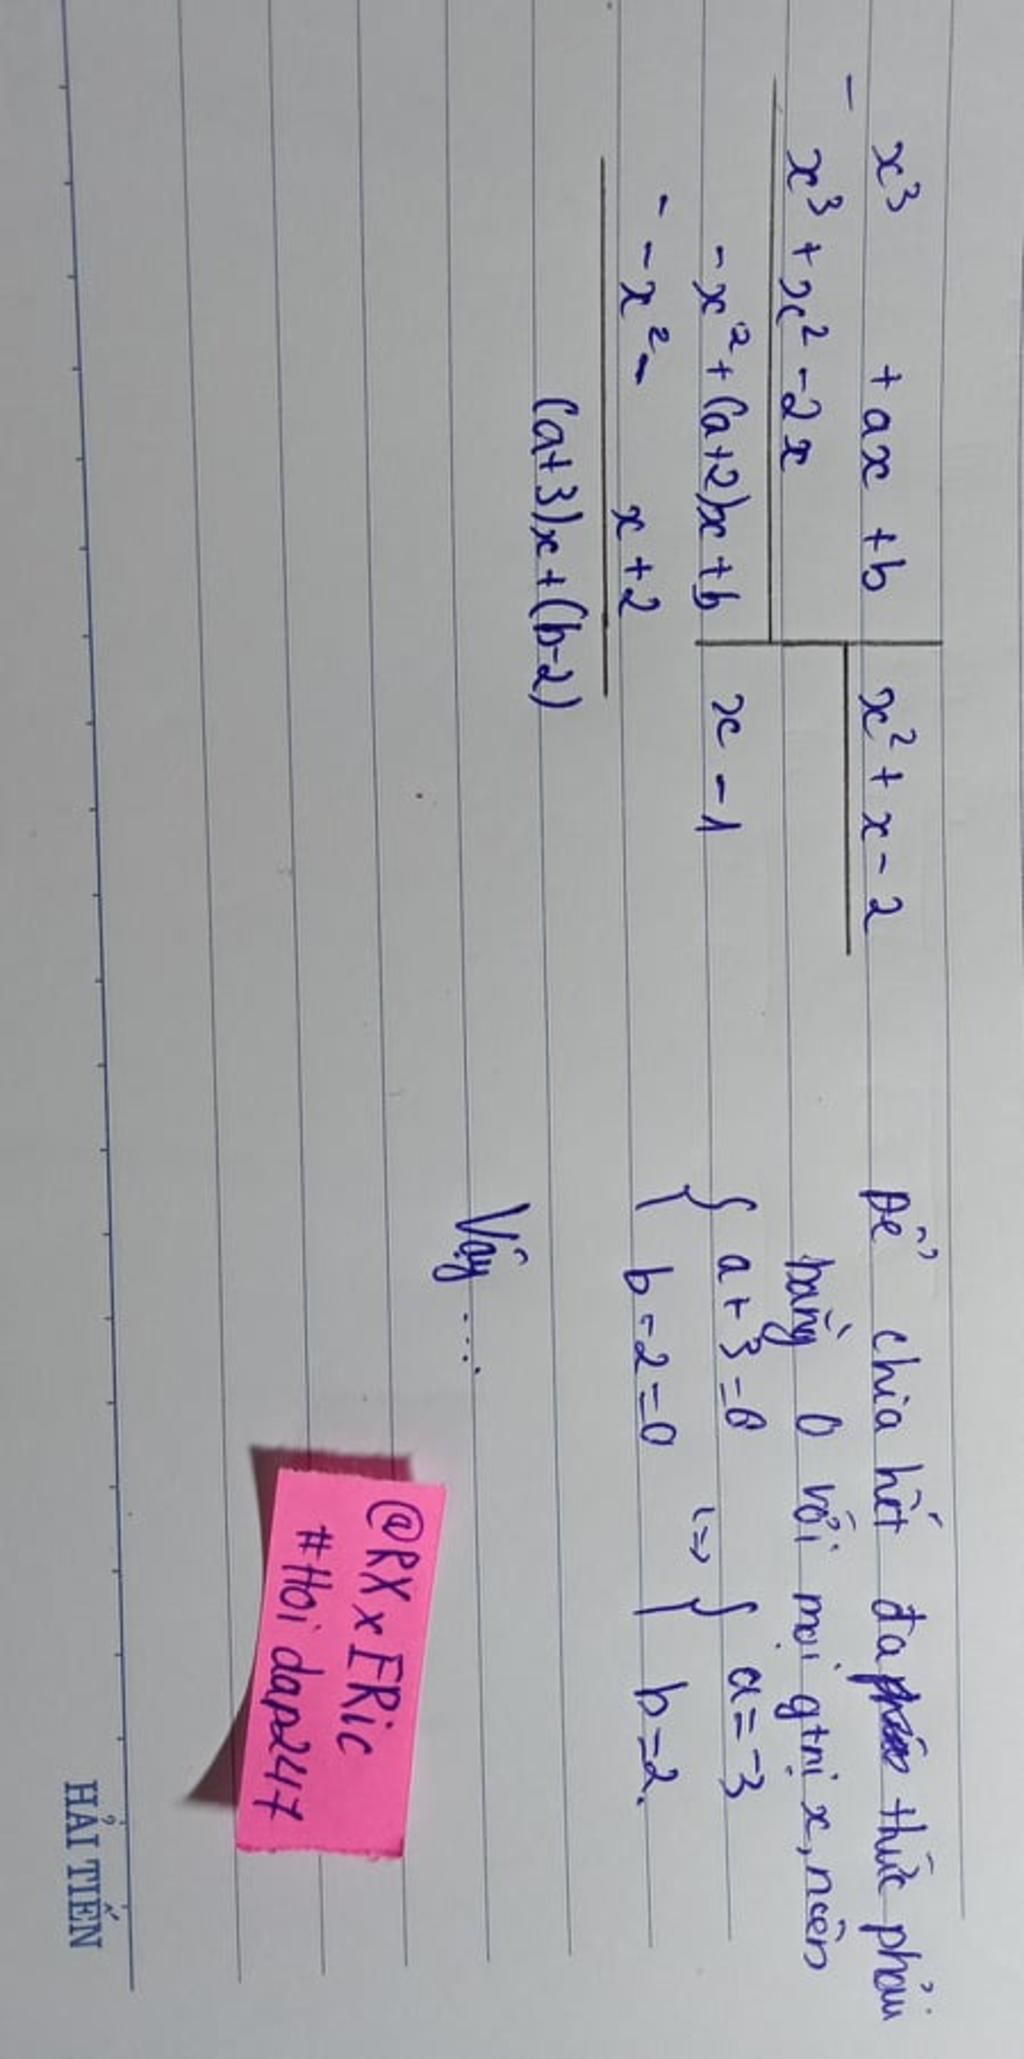 x³ + ax + b
x² + x - 2
- x³ + x² - 2x
x - 1
- x² + (a+2)x + b
- - x² - x + 2
(a+3)x + (b-2)
Để chia hết đa thức phải
bằng 0 với mọi gtrị x, nên
{ a + 3 = 0 => { a = -3
{ b - 2 = 0 { b = 2.
Vậy ....
@RX x ERic
#Hoi dap247
HẢI TIẾN